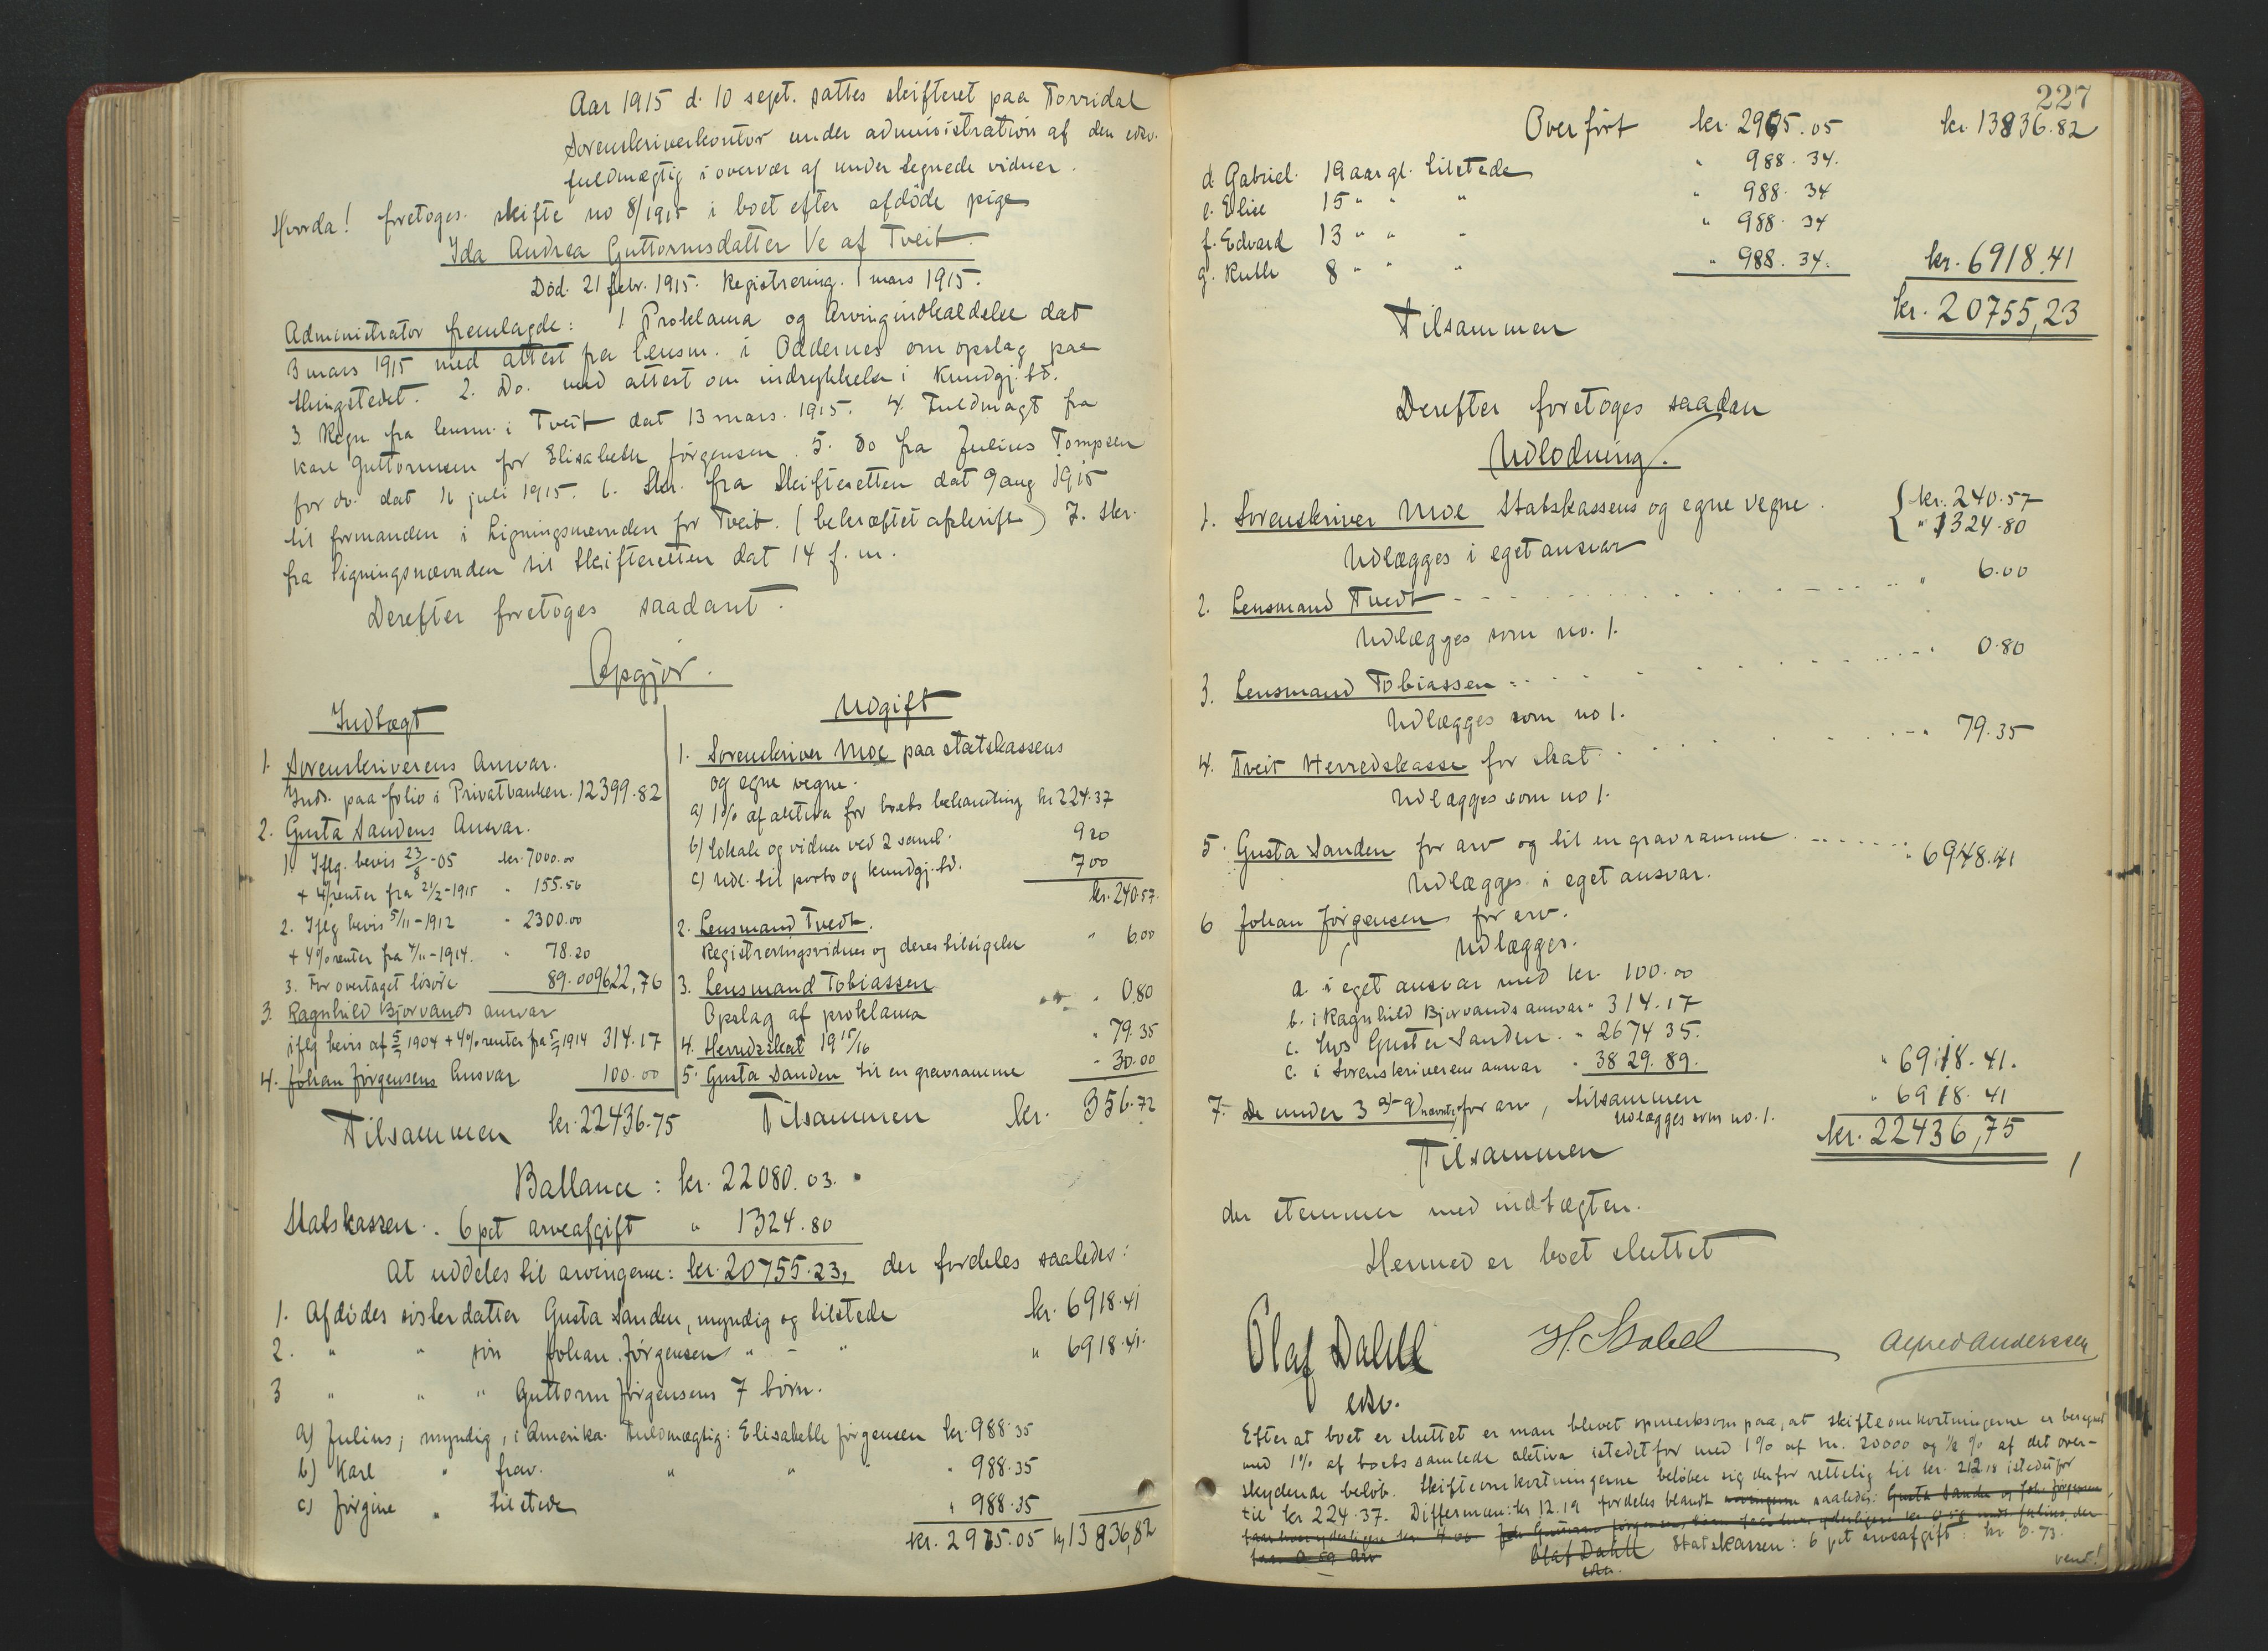 Aar 1915 d. 10 sept. sattes skifteret paa Torridal
Sorenskriverkontor under administration af den edsv.
fuldmægtig i overvær af undertegnede vidner.
Hvorda! foretoges skifte no 8/1915 i boet efter afdøde pige
Ida Andrea Guttormsdatter Ve af Tveit.
Død. 21 febr. 1915. Registrering. 1 mars 1915.
Administrator fremlagde: 1 Proklama og Arvingindkaldelse dat
3 mars 1915 med attest fra lensm. i Oddernes om opslag paa
thingstedet. 2. Do. med attest om indrykkelse i Kundgj. td.
3. Regn. fra lensm. i Tveit dat 13 mars. 1915. 4. Fuldmagt fra
Karl Guttormsen for Elisabeth Jørgensen. 5. Do fra Julius Tompsen
for do. dat 16 juli 1915. 6. Skr. fra Skifteretten dat 9 aug 1915
til formanden i Ligningsnævnden for Tveit. (bekræftet afskrift) 7. Skr.
fra ligningsnævnden til Skifteretten dat 14 f. m.
Derefter foretoges saadant
Opgjør.
Indtægt
1. Sorenskriverens Ansvar.
Inds. paa folio i Privatbanken. 12399.82
2. Gusta Sandens Ansvar.
1. Iflg. bevis 23/8-05 kr. 7000.00
+ 4% renter fra 21/2-1915 " 155.56
2. Iflg bevis 5/11-1912 " 2300.00
+ 4% renter fra 4/11-1914. " 78.20
3. For overtaget løsøre 89.00 9622,76
3. Ragnhild Bjorvands ansvar
iflg bevis af 5/7 1904 + 4% renter fra 5/7 1914 314.17
4. Johan Jørgensens Ansvar 100.00
Tilsammen kr. 22436.75
Udgift
1. Sorenskriver Moe paa statskassens
og egne vegne.
a) 1% af aktiva for boets behandling kr 224.37
b) Lokale og vidner ved 2 saml. 9 20
c) Udl. til porto og kundgj. td. 7 00
kr. 240.57.
2. Lensmand Tvedt.
Registreringsvidner og deres tilsigelse " 6.00
3. Lensmand Tobiassen
Opslag af proklama " 0.80
4. Herredsskat 19 15/16 " 79.35
5. Gusta Sanden til en gravramme " 30.00
Tilsammen kr. 356.72
Ballance: kr. 22080.03.
Statskassen. 6 pct arveafgift " 1324.80
At uddeles til arvingerne: kr. 20755.23, der fordeles saaledes:
1. Afdødes søsterdatter Gusta Sanden, myndig og tilstede kr. 6918.41
2. " " søn Johan Jørgensen " - " " 6918.41.
3 " " " Guttorm Jørgensens 7 børn.
a) Julius, myndig, i Amerika. Fuldmægtig: Elisabeth Jørgensen kr. 988.35
b) Karl " frav. " " " " 988.35
c) Jørgine " tilstede " 988.35
kr. 2965.05 kr 13836,82
227
Overført kr. 2965.05 kr. 13836.82
d. Gabriel. 19 aar gl. tilstede " 988.34.
e. Elise 15 " " " " 988.34
f. Edvard 13 " " " " 988.34
g. Ruth 8 " " " " 988.34. kr. 6918.41
Tilsammen kr. 20755,23
Derefter foretoges saadan
Udlodning.
1. Sorenskriver Moe Statskassens og egne vegne. kr. 240.57
" 1324.80
Udlægges i eget ansvar
2. Lensmand Tvedt " 6.00
Udlægges som no. 1.
3. Lensmand Tobiassen " 0.80
Udlægges som no 1.
4. Tveit Herredskasse for skat " 79.35
Udlægges som no 1.
5. Gusta Sanden for arv og til en gravramme " 6948.41
Udlægges i eget ansvar.
6 Johan Jørgensen for arv.
Udlægges.
a. i eget ansvar med kr. 100.00
b. i Ragnhild Bjorvands ansvar " 314.17
c. hos Gusta Sanden. " 2674 35.
c. i Sorenskriverens ansvar " 3829.89. " 6918.41.
7. De under 3 a)-g) nævnte, for arv, tilsammen " 6918.41
Udlægges som no. 1.
Tilsammen kr. 22436,75
der stemmer med indtægten.
Hermed er boet sluttet
Olaf Dahll
edsv.
H. Stabel
Alfred Anderssen
Efter at boet er sluttet er man blevet opmerksom paa, at skifteomkostningerne er beregnet
med 1% af boets samlede aktiva istedetfor med 1% af kr. 20000 og ½% af det over-
skydende beløb. Skifteomkostningerne beløber sig derfor rettelig til kr. 212.18 istedetfor
til kr 224.37. Differensen: kr 12.19 fordeles blandt arvingerne saaledes: Gusta Sanden og Joh. Jørgensen
faar hver yderligere kr 4.06
Statskassen: 6 pct arveafgift kr 0.73.
Olaf Dahll
edsv.
vend!